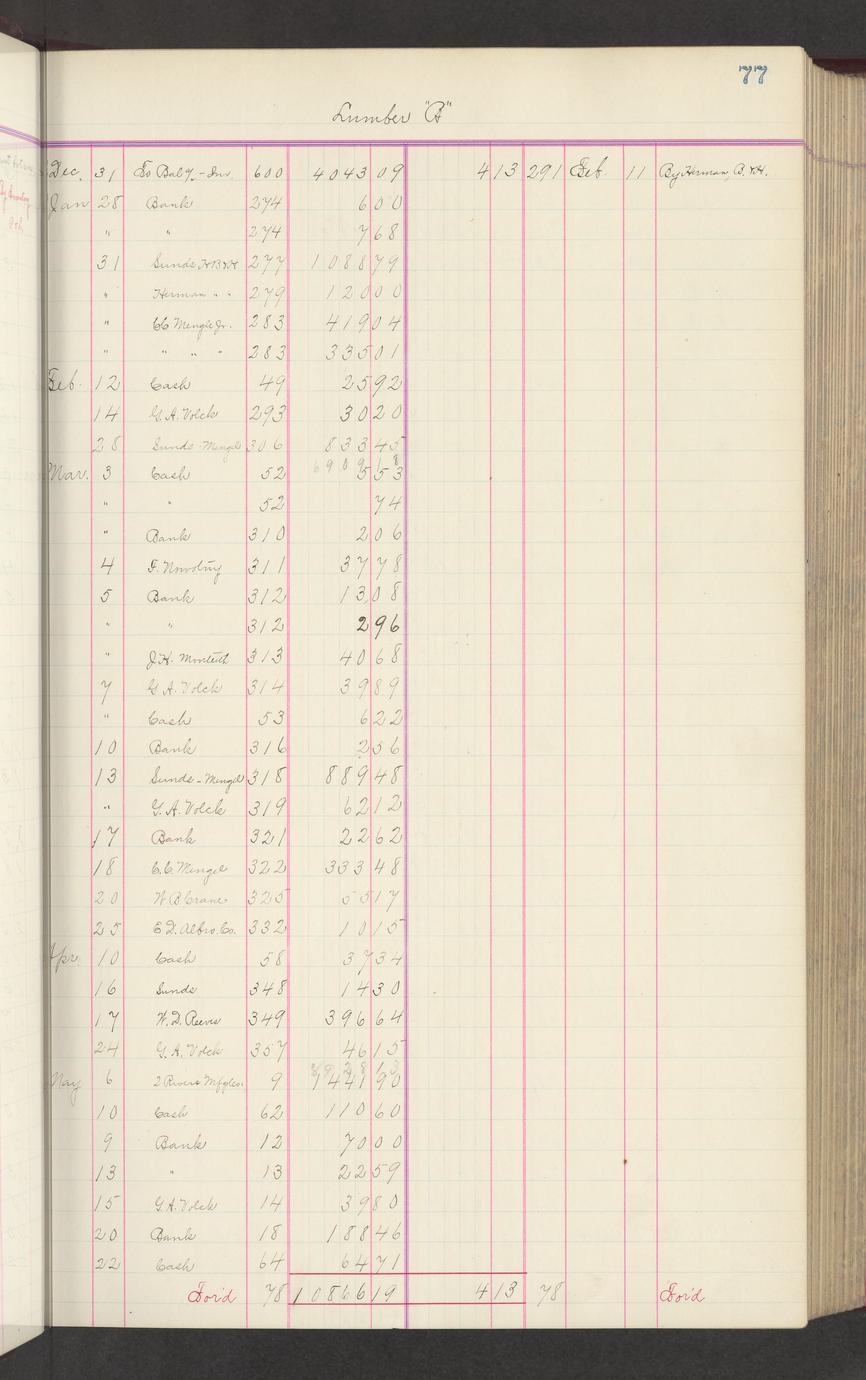 77
Lumber "B"
Dec. 31 To Bal y. - Inv. 600 4043 09 4 13 291 Feb. 11 By Herman, B. & H.
Jan 28 Bank 274 6 00
" " 274 7 68
31 Sunds H B & H 277 1088 79
" Herman " " 279 120 00
" CC Mengel Jr. 283 419 04
" " " " 283 335 01
Feb. 12 Cash 49 25 92
14 G. A. Volck 293 30 20
28 Sunds - Mengel 306 833 45
6909 18
Mar. 3 Cash 52 5 53
" " 52 74
" Bank 310 2 06
4 F. Nowotny 311 37 78
5 Bank 312 13 08
" " 312 2 96
" J. H. Monteith 313 40 68
7 G A. Volck 314 39 89
" Cash 53 6 22
10 Bank 316 2 56
13 Sunds - Mengel 318 889 48
" G. A. Volck 319 62 12
17 Bank 321 22 62
18 C. C. Mengel 322 333 48
20 W. B Crane 325 55 17
25 E D. Albro. Co. 332 10 15
Apr. 10 Cash 58 37 34
16 Sunds 348 14 30
17 W. D. Reeves 349 396 64
24 G. A. Volck 357 46 15
May 6 2 Rivers Mfg Co. 9 1441 90
10 Cash 62 110 60
9 Bank 12 70 00
13 " 13 22 59
15 G. A. Volck 14 39 80
20 Bank 18 188 46
22 Cash 64 64 71
For'd 78 10866 19 4 13 78 For'd